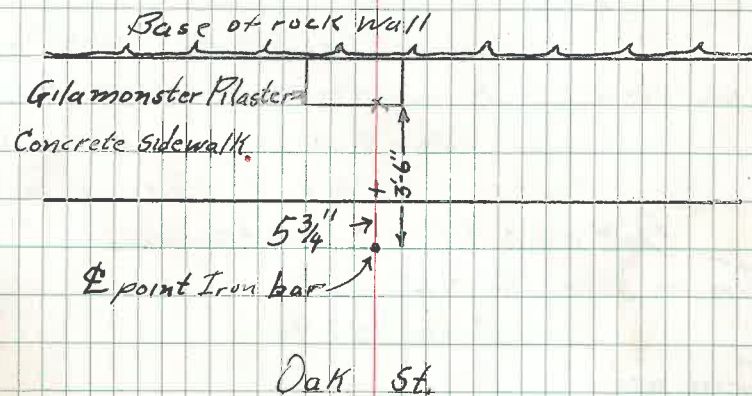 Base of rock wall
Gilamonster Pilaster
Concrete sidewalk.
3'-6"
5 3/4"
℄ point Iron bar
Oak St.